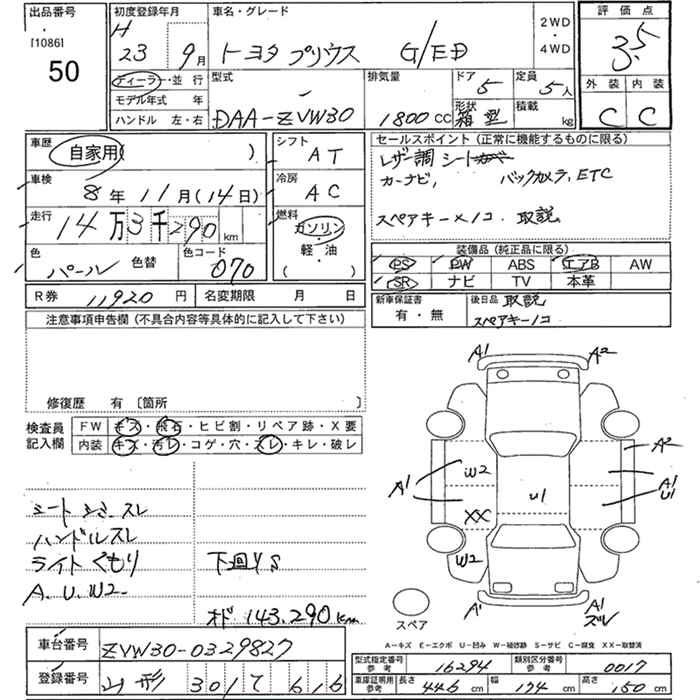 出品番号
[1086]
50
初度登録年月
H
23 9月
車名・グレード
トヨタ プリウス G/ED
2WD
・
4WD
評価点
3.5
外装 内装
C C
ディーラー・並行
モデル年式 年
ハンドル 左・右
型式
DAA-ZVW30
排気量
1800cc
ドア
5
形状
箱型
定員
5人
積載
kg
車歴
自家用( )
車検
8年 11月(14日)
走行
14万3千290km
色
パール
色替
色コード
070
シフト
AT
冷房
AC
燃料
ガソリン
軽・油
( )
セールスポイント(正常に機能するものに限る)
レザー調 シート
カーナビ, バックカメラ, ETC
スペアキー×1コ. 取説.
装備品(純正品に限る)
PS PW ABS エアB AW
SR ナビ TV 本革
R券 11920円 名変期限 月 日
新車保証書
有・無
後日品 取説
スペアキー1コ
注意事項申告欄(不具合内容等具体的に記入して下さい)
修復歴 有〔箇所 〕
検査員
記入欄
FW キズ・飛石・ヒビ割・リペア跡・X要
内装 キズ・汚レ・コゲ・穴・スレ・キレ・破レ
シート シミ. スレ
ハンドルスレ
ライトくもり
A. U. W2.
下廻りS
オド 143,290km
A1 A2
A2
A1 W2 U1 A1
U1
XX
W2
A1 A1
ズレ
スペア
A-キズ E-エクボ U-凹み W-補修跡 S-サビ C-腐食 XX-取替済
車台番号 ZVW30-0329827
登録番号 山形 301 て 616
型式指定番号
参考
16294
類別区分番号
参考
0017
車庫証明用
参考
長さ 446cm 幅 174cm 高さ 150cm